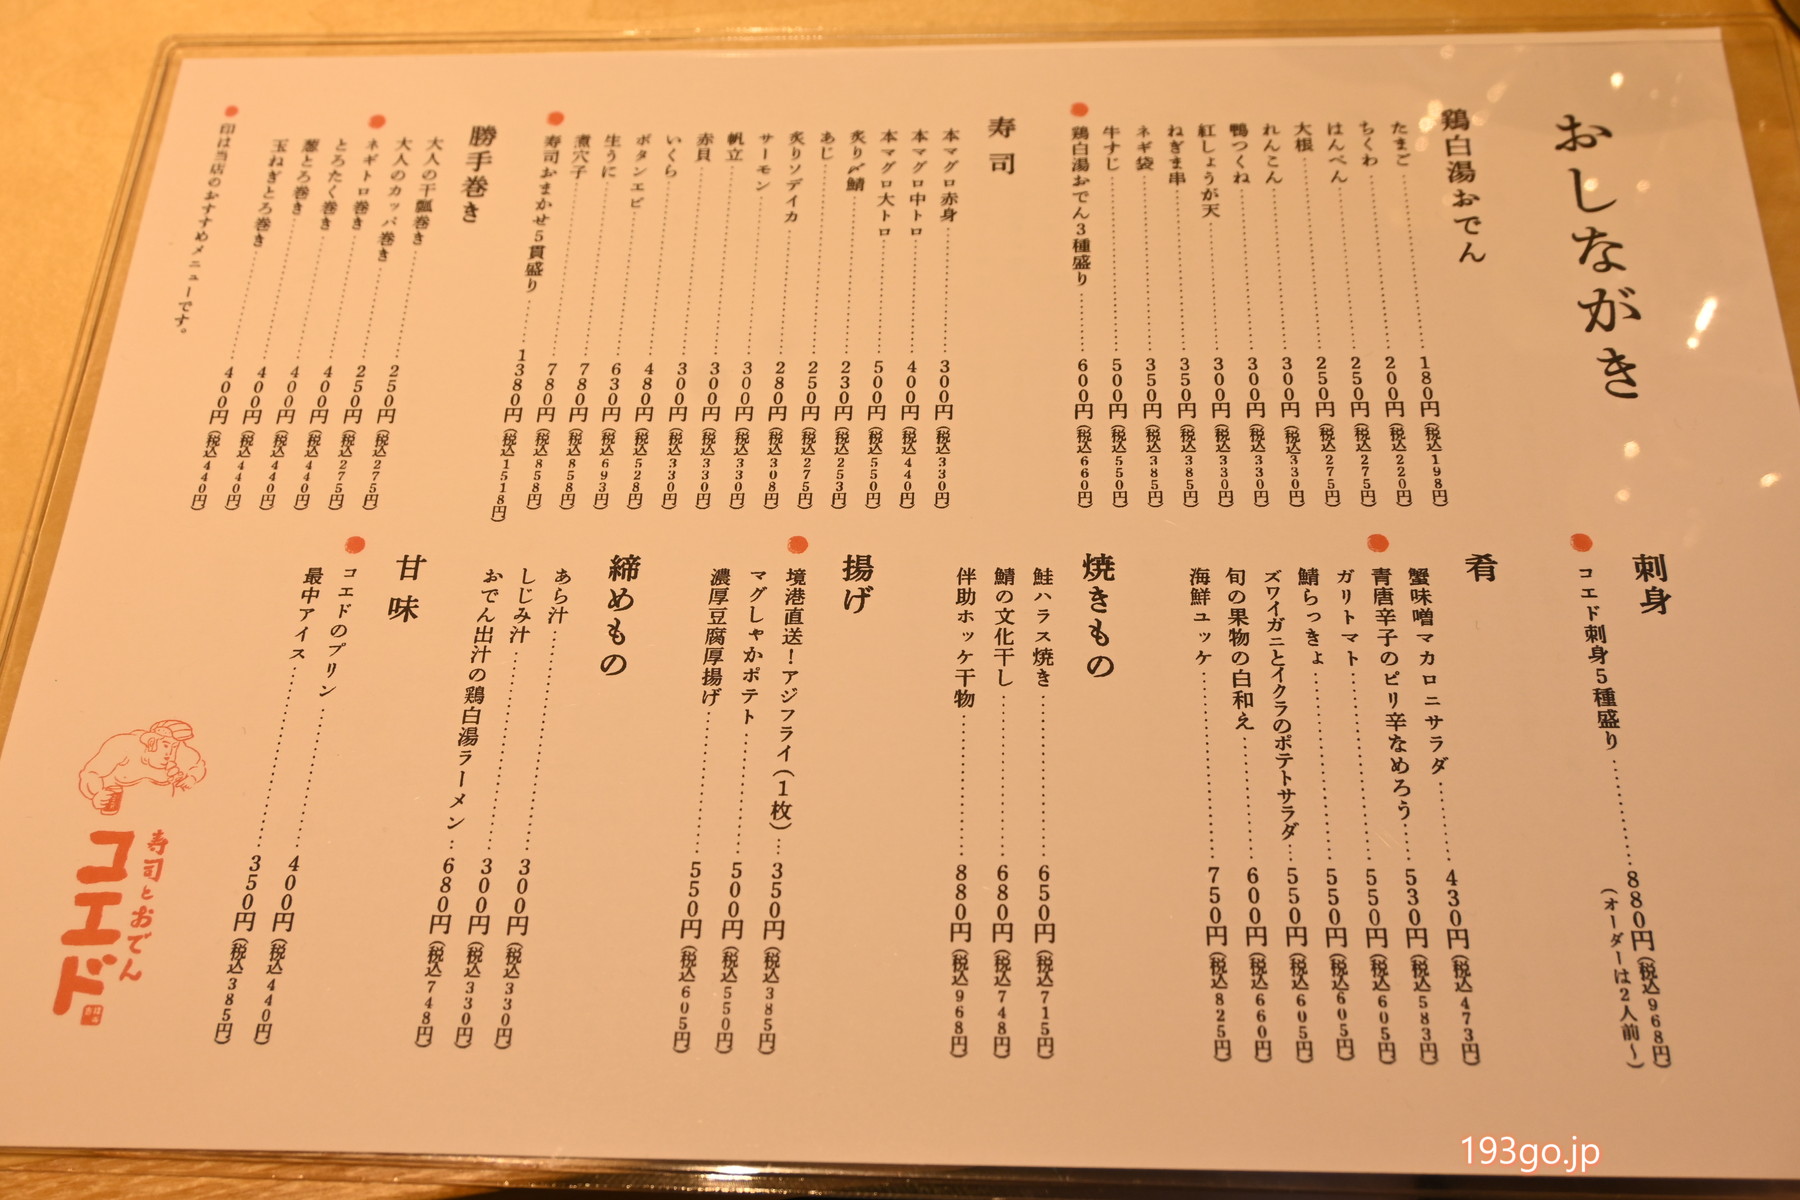 おしながき
鶏白湯おでん
たまご 180円(税込198円)
ちくわ 200円(税込220円)
はんぺん 250円(税込275円)
大根 250円(税込275円)
れんこん 300円(税込330円)
鴨つくね 300円(税込330円)
紅しょうが天 300円(税込330円)
ねぎま串 350円(税込385円)
ネギ袋 350円(税込385円)
牛すじ 500円(税込550円)
鶏白湯おでん3種盛り 600円(税込660円)
寿司
本マグロ赤身 300円(税込330円)
本マグロ中トロ 400円(税込440円)
本マグロ大トロ 500円(税込550円)
炙り〆鯖 230円(税込253円)
あじ 250円(税込275円)
炙りソデイカ 280円(税込308円)
サーモン 300円(税込330円)
帆立 300円(税込330円)
赤貝 300円(税込330円)
いくら 480円(税込528円)
ボタンエビ 630円(税込693円)
生うに 780円(税込858円)
煮穴子 780円(税込858円)
寿司おまかせ5貫盛り 1380円(税込1518円)
勝手巻き
大人の干瓢巻き 250円(税込275円)
大人のカッパ巻き 250円(税込275円)
ネギトロ巻き 400円(税込440円)
とろたく巻き 400円(税込440円)
葱とろ巻き 400円(税込440円)
玉ねぎとろ巻き 400円(税込440円)
印は当店のおすすめメニューです。
刺身
コエド刺身5種盛り 880円(税込968円)
(オーダーは2人前~)
肴
蟹味噌マカロニサラダ 430円(税込473円)
青唐辛子のピリ辛なめろう 530円(税込583円)
ガリトマト 550円(税込605円)
鯖らっきょ 550円(税込605円)
ズワイガニとイクラのポテトサラダ 550円(税込605円)
旬の果物の白和え 600円(税込660円)
海鮮ユッケ 750円(税込825円)
焼きもの
鮭ハラス焼き 650円(税込715円)
鯖の文化干し 680円(税込748円)
伴助ホッケ干物 880円(税込968円)
揚げ
境港直送!アジフライ(1枚) 350円(税込385円)
マグしゃかポテト 500円(税込550円)
濃厚豆腐厚揚げ 550円(税込605円)
締めもの
あら汁 300円(税込330円)
しじみ汁 300円(税込330円)
おでん出汁の鶏白湯ラーメン 680円(税込748円)
甘味
コエドのプリン 400円(税込440円)
最中アイス 350円(税込385円)
寿司とおでん
コエド
193go.jp